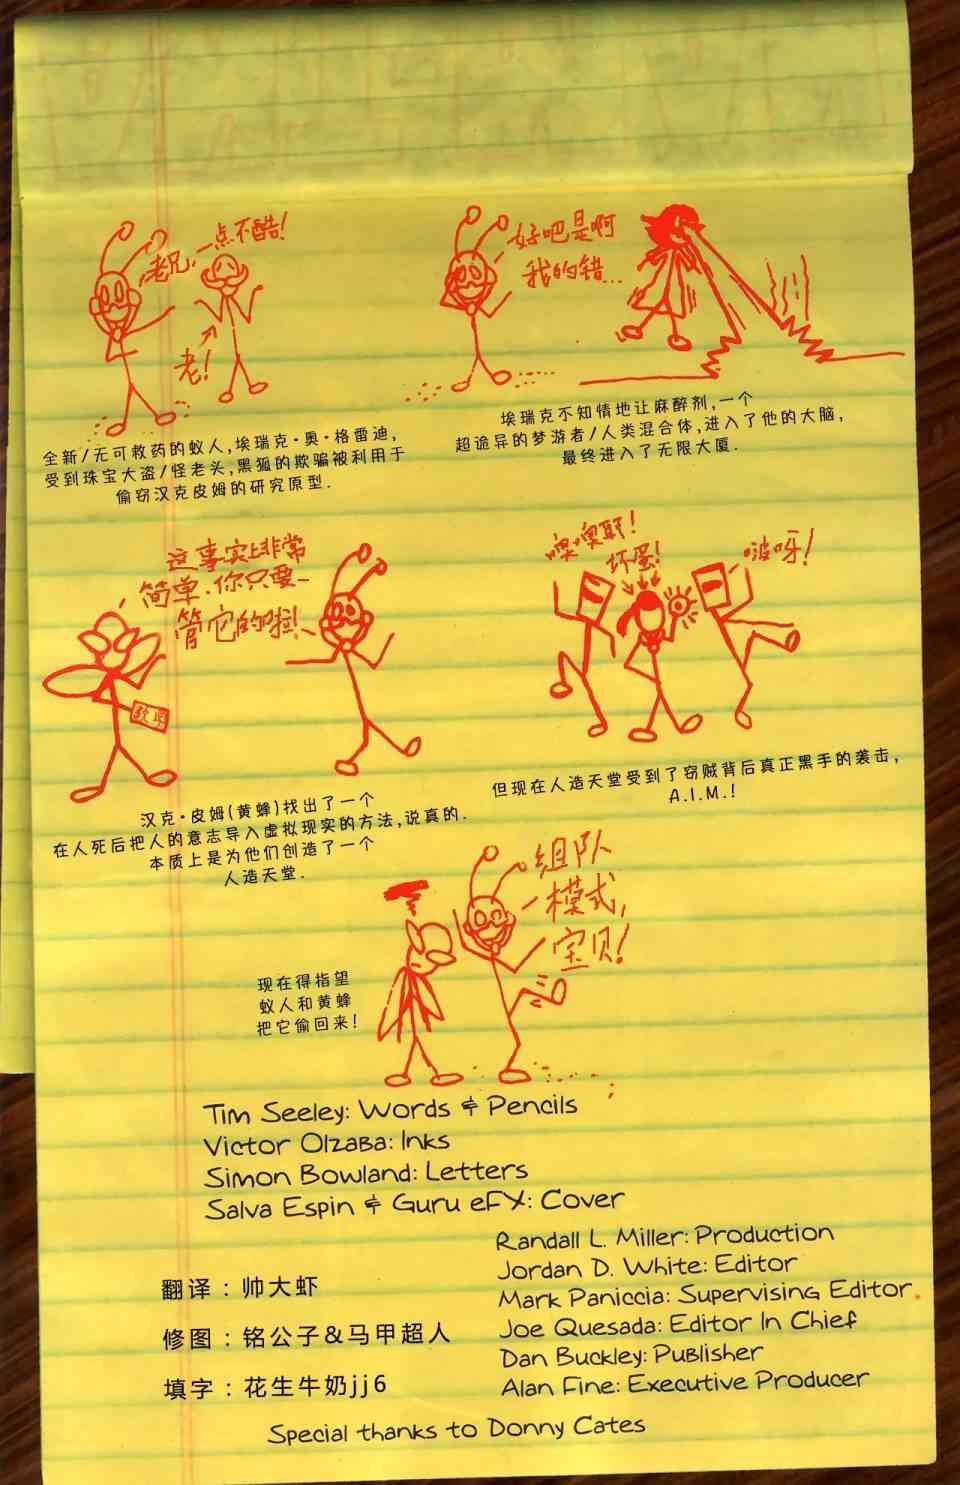 老兄,一点不酷!
老!
全新/无可救药的蚁人,埃瑞克·奥·格雷迪,
受到珠宝大盗/怪老头,黑狐的欺骗被利用于
偷窃汉克皮姆的研究原型.
好吧是啊
我的错...
埃瑞克不知情地让麻醉剂,一个
超诡异的梦游者/人类混合体,进入了他的大脑,
最终进入了无限大厦.
这事实上非常
简单.你只要–
管它的啦!
汉克·皮姆(黄蜂)找出了一个
在人死后把人的意志导入虚拟现实的方法,说真的.
本质上是为他们创造了一个
人造天堂.
噢噢耶!
坏蛋!
啵呀!
但现在人造天堂受到了窃贼背后真正黑手的袭击,
A.I.M.!
组队
模式,
宝贝!
现在得指望
蚁人和黄蜂
把它偷回来!
Tim Seeley: Words & Pencils
Victor Olzaba: Inks
Simon Bowland: Letters
Salva Espin & Guru eFX: Cover
Randall L. Miller: Production
Jordan D. White: Editor
Mark Paniccia: Supervising Editor
Joe Quesada: Editor In Chief
Dan Buckley: Publisher
Alan Fine: Executive Producer
翻译：帅大虾
修图：铭公子&马甲超人
填字：花生牛奶jj6
Special thanks to Donny Cates